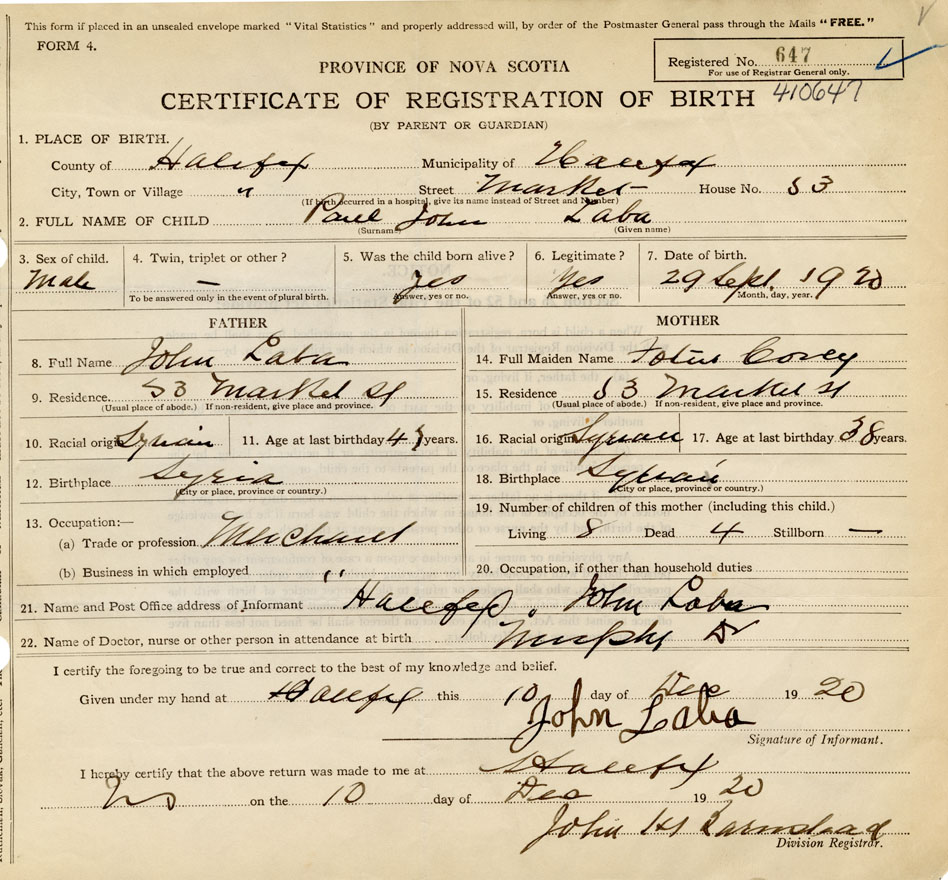 This form if placed in an unsealed envelope marked "Vital Statistics" and properly addressed will, by order of the Postmaster General pass through the Mails "FREE."
FORM 4.
Registered No. 647
For use of Registrar General only.
PROVINCE OF NOVA SCOTIA
CERTIFICATE OF REGISTRATION OF BIRTH 410647
(BY PARENT OR GUARDIAN)
1. PLACE OF BIRTH.
County of Halifax Municipality of Halifax
City, Town or Village " Street Market House No. 53
(If birth occurred in a hospital, give its name instead of Street and Number)
2. FULL NAME OF CHILD Paul John Laba
(Surname) (Given name)
3. Sex of child. 4. Twin, triplet or other? 5. Was the child born alive? 6. Legitimate? 7. Date of birth.
Male — Yes Yes 29 Sept. 1920
To be answered only in the event of plural birth. Answer, yes or no. Answer, yes or no. Month, day, year.
FATHER MOTHER
8. Full Name John Laba 14. Full Maiden Name Corey
9. Residence. 53 Market St 15. Residence 53 Market St
(Usual place of abode.) If non-resident, give place and province. (Usual place of abode.) If non-resident, give place and province.
10. Racial origin Syrian 11. Age at last birthday 47 years. 16. Racial origin Syrian 17. Age at last birthday 38 years.
12. Birthplace Syria 18. Birthplace Syrian
(City or place, province or country.) (City or place, province or country.)
19. Number of children of this mother (including this child.)
13. Occupation:—
(a) Trade or profession Merchant Living 8 Dead 4 Stillborn —
(b) Business in which employed " 20. Occupation, if other than household duties
21. Name and Post Office address of Informant Halifax. John Laba
22. Name of Doctor, nurse or other person in attendance at birth Murphy Dr
I certify the foregoing to be true and correct to the best of my knowledge and belief.
Given under my hand at Halifax this 10 day of Dec 1920
John Laba
Signature of Informant.
I hereby certify that the above return was made to me at Halifax
NS on the 10 day of Dec 1920
John H Barnstead
Division Registrar.